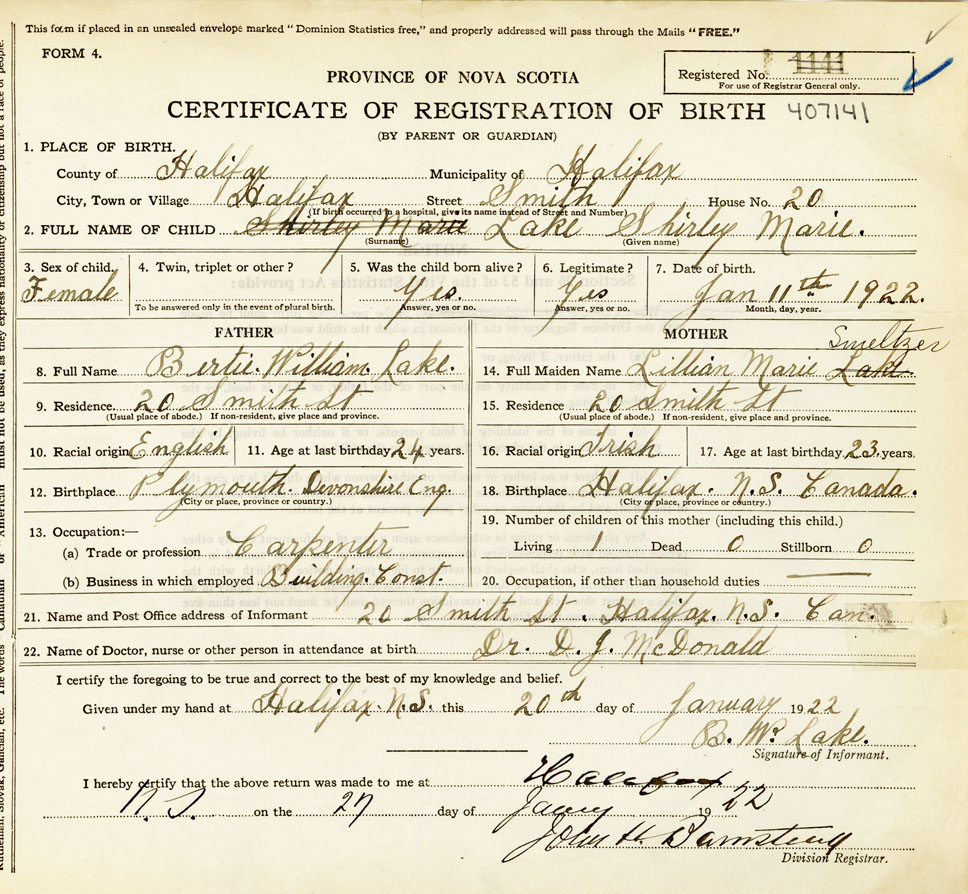 This form if placed in an unsealed envelope marked "Dominion Statistics free," and properly addressed will pass through the Mails "FREE."
FORM 4.
Registered No. 1141
For use of Registrar General only.
PROVINCE OF NOVA SCOTIA
CERTIFICATE OF REGISTRATION OF BIRTH 407141
(BY PARENT OR GUARDIAN)
1. PLACE OF BIRTH.
County of Halifax Municipality of Halifax
City, Town or Village Halifax Street Smith House No. 20
(If birth occurred in a hospital, give its name instead of Street and Number)
2. FULL NAME OF CHILD Shirley Marie Lake Shirley Marie.
(Surname) (Given name)
3. Sex of child. 4. Twin, triplet or other? 5. Was the child born alive? 6. Legitimate? 7. Date of birth.
Female Yes. Yes Jan 11th 1922.
To be answered only in the event of plural birth. Answer, yes or no. Answer, yes or no. Month, day, year.
FATHER MOTHER Smeltzer
8. Full Name Bertie. William. Lake. 14. Full Maiden Name Lillian Marie Lake.
9. Residence. 20 Smith St 15. Residence 20 Smith St
(Usual place of abode.) If non-resident, give place and province. (Usual place of abode.) If non-resident, give place and province.
10. Racial origin English 11. Age at last birthday 24 years. 16. Racial origin Irish 17. Age at last birthday 23 years.
12. Birthplace Plymouth. Devonshire Eng. 18. Birthplace Halifax. N.S. Canada.
(City or place, province or country.) (City or place, province or country.)
13. Occupation:— 19. Number of children of this mother (including this child.)
(a) Trade or profession Carpenter Living 1 Dead 0 Stillborn 0
(b) Business in which employed Building. Const. 20. Occupation, if other than household duties —
21. Name and Post Office address of Informant 20 Smith St. Halifax. N.S. Can.
22. Name of Doctor, nurse or other person in attendance at birth Dr. D. J. McDonald
I certify the foregoing to be true and correct to the best of my knowledge and belief.
Given under my hand at Halifax. N.S. this 20th day of January 1922
B. W. Lake.
Signature of Informant.
I hereby certify that the above return was made to me at Halifax
N.S. on the 27 day of Jany 1922
John H.
Division Registrar.